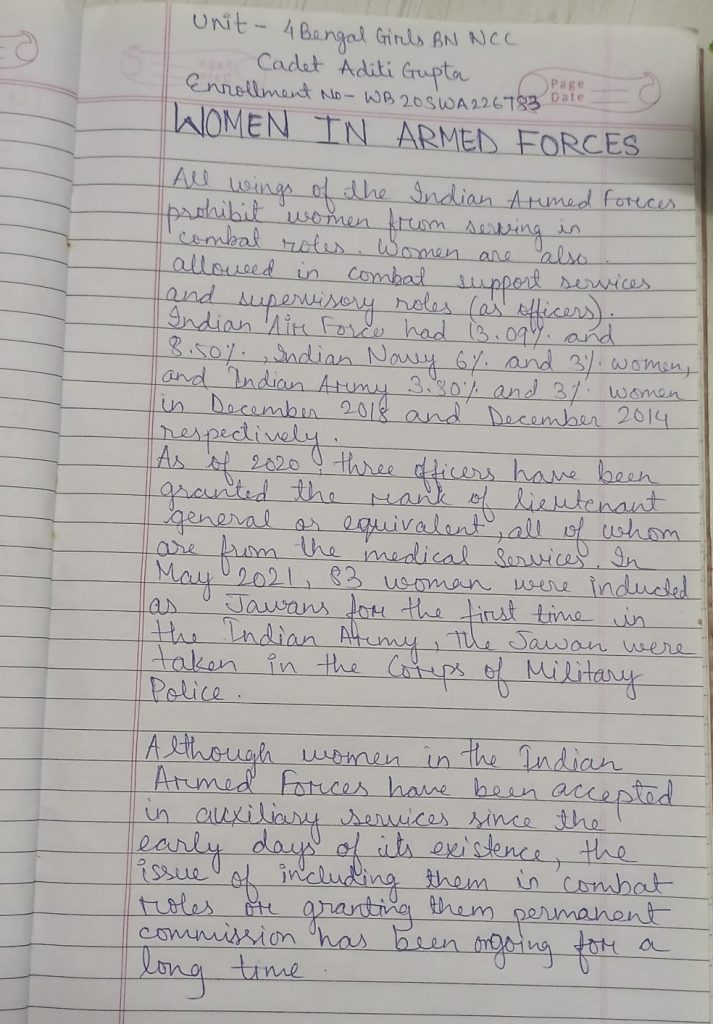 Unit - 4 Bengal Girls BN NCC
Cadet Aditi Gupta
Enrollment No - WB20SWA226783
Page
Date
WOMEN IN ARMED FORCES
All wings of the Indian Armed Forces
prohibit women from serving in
combat roles. Women are also
allowed in combat support services
and supervisory roles (as officers).
Indian Air Force had 13.09% and
8.50%, Indian Navy 6% and 3% women,
and Indian Army 3.80% and 3% women
in December 2018 and December 2014
respectively.
As of 2020, three officers have been
granted the rank of lieutenant
general or equivalent, all of whom
are from the medical Services. In
May 2021, 83 woman were inducted
as Jawans for the first time in
the Indian Army, The Jawan were
taken in the Corps of Military
Police.
Although women in the Indian
Armed Forces have been accepted
in auxiliary services since the
early days of its existence, the
issue of including them in combat
roles or granting them permanent
commission has been ongoing for a
long time.